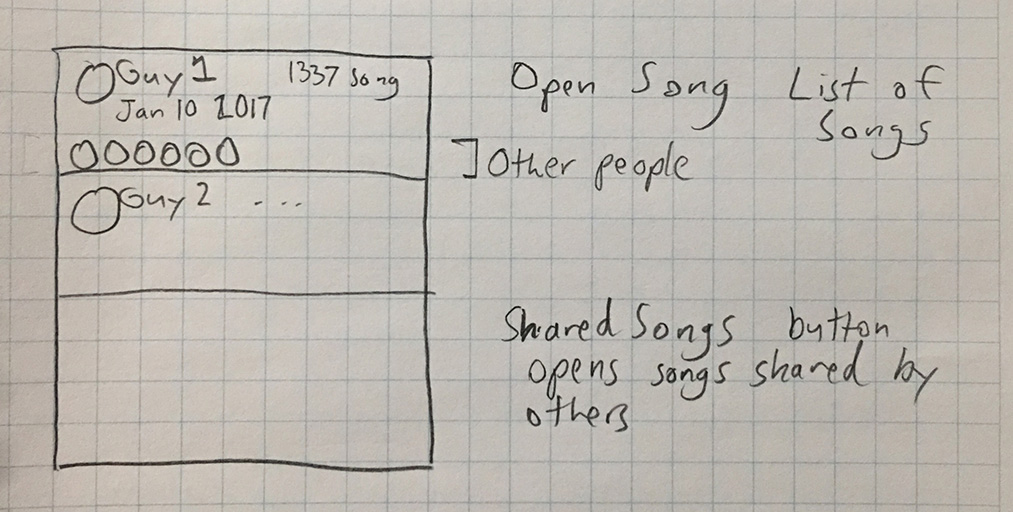 Guy 1 1337 Song
Jan 10 2017
Guy 2 ...
Open Song List of
Songs
Other people
Shared Songs button
opens songs shared by
others